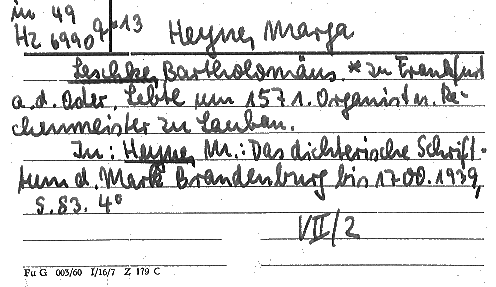 in 49
Hz 6990 q*13
Heyne, Marga
Leschke, Bartholomäus. * zu Frankfurt
a. d. Oder. Lebte um 1571. Organist u. Re-
chenmeister zu Lauban.
In: Heyne, M.: Das dichterische Schrift-
tum d. Mark Brandenburg bis 1700. 1939,
S. 83. 4°
VII/2
Fu G 003/60 I/16/7 Z 179 C